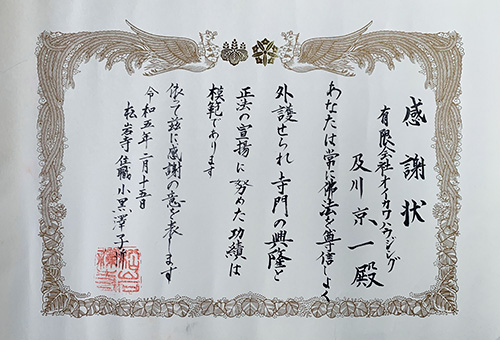 感謝状
有限会社オイカワハウジング
及川京一殿
あなたは常に佛法を尊信しよく
外護せられ寺門の興隆と
正法の宣揚に努めた功績は
模範であります
依って茲に感謝の意を表します
令和五年二月十五日
松岩寺住職小黒澤子